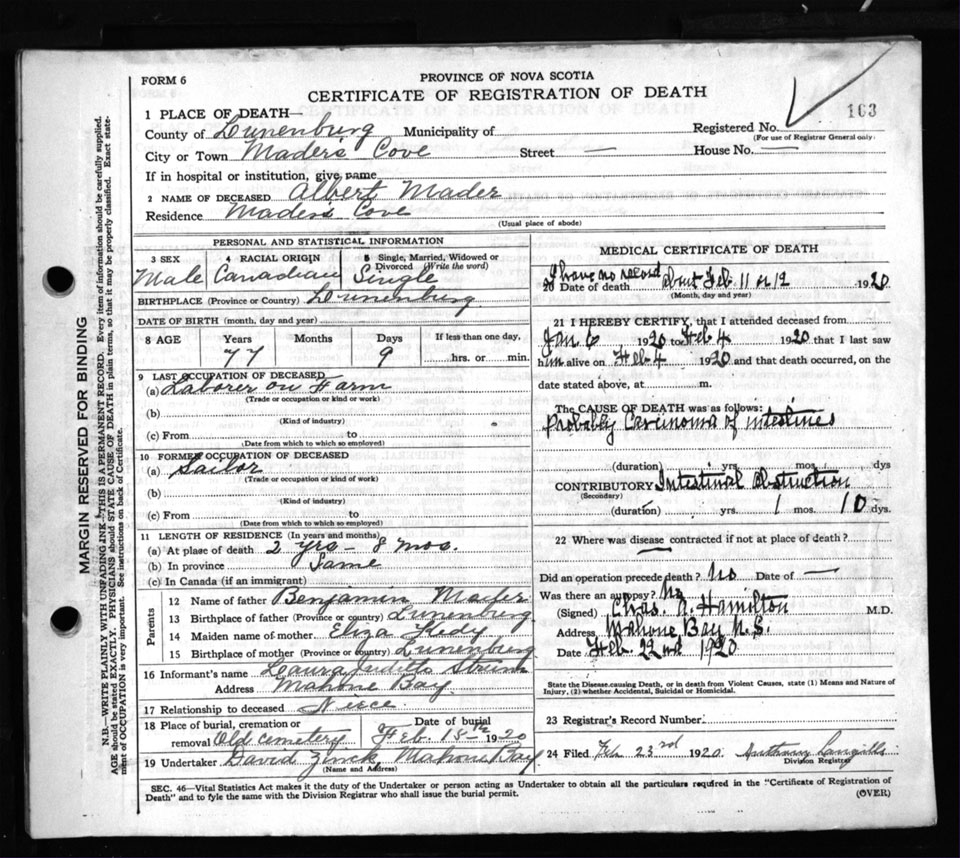 FORM 6
PROVINCE OF NOVA SCOTIA
CERTIFICATE OF REGISTRATION OF DEATH
163
1 PLACE OF DEATH—
Registered No.
(For use of Registrar General only)
County of Lunenburg Municipality of
City or Town Mader's Cove Street — House No. —
If in hospital or institution, give name
2 NAME OF DECEASED Albert Mader
Residence Mader's Cove
(Usual place of abode)
MARGIN RESERVED FOR BINDING
N.B.—WRITE PLAINLY WITH UNFADING INK—THIS IS A PERMANENT RECORD. Every item of information should be carefully supplied.
AGE should be stated EXACTLY. PHYSICIANS should STATE CAUSE OF DEATH in plain terms, so that it may be properly classified. Exact state-
ment of OCCUPATION is very important. See instructions on back of Certificate.
PERSONAL AND STATISTICAL INFORMATION
3 SEX
Male
4 RACIAL ORIGIN
Canadian
5 Single, Married, Widowed or
Divorced (Write the word)
Single
BIRTHPLACE (Province or Country) Lunenburg
DATE OF BIRTH (month, day and year)
8 AGE Years Months Days If less than one day,
77 9 hrs. or min.
9 LAST OCCUPATION OF DECEASED
(a) Laborer on Farm
(Trade or occupation or kind or work)
(b)
(Kind of industry)
(c) From to
(Date from which to which so employed)
10 FORMER OCCUPATION OF DECEASED
(a) Sailor
(Trade or occupation or kind of work)
(b)
(Kind of industry)
(c) From to
(Date from which to which so employed)
11 LENGTH OF RESIDENCE (In years and months)
(a) At place of death 2 yrs – 8 mos.
(b) In province Same
(c) In Canada (if an immigrant)
Parents
12 Name of father Benjamin Mader
13 Birthplace of father (Province or country) Lunenburg
14 Maiden name of mother Eliza
15 Birthplace of mother (Province or country) Lunenburg
16 Informant's name Laura Judith Strum
Address Mahone Bay
17 Relationship to deceased Neece
18 Place of burial, cremation or Date of burial
removal Old Cemetery Feb. 15th 1920
19 Undertaker David Zinck, Mahone Bay
(Name and Address)
MEDICAL CERTIFICATE OF DEATH
I have no record
20 Date of death about Feb 11 or 12 1920
(Month, day and year)
21 I HEREBY CERTIFY, that I attended deceased from
Jan 6 1920 to Feb 4 1920 that I last saw
him alive on Feb 4 1920 and that death occurred, on the
date stated above, at m.
The CAUSE OF DEATH was as follows:
Probably Carcinoma of intestines
(duration) yrs. mos. dys
CONTRIBUTORY Intestinal Obstruction
(Secondary)
(duration) yrs. 1 mos. 10 dys.
22 Where was disease contracted if not at place of death?
Did an operation precede death? No Date of —
Was there an autopsy? No
(Signed) Chas. A. Hamilton M.D.
Address Mahone Bay N.S.
Date Feb. 22nd 1920
State the Disease causing Death, or in death from Violent Causes, state (1) Means and Nature of
Injury, (2) whether Accidental, Suicidal or Homicidal.
23 Registrar's Record Number
24 Filed Feb 23rd 1920. Anthony Langille
Division Registrar
SEC. 46—Vital Statistics Act makes it the duty of the Undertaker or person acting as Undertaker to obtain all the particulars required in the "Certificate of Registration of
Death" and to fyle the same with the Division Registrar who shall issue the burial permit.
(OVER)